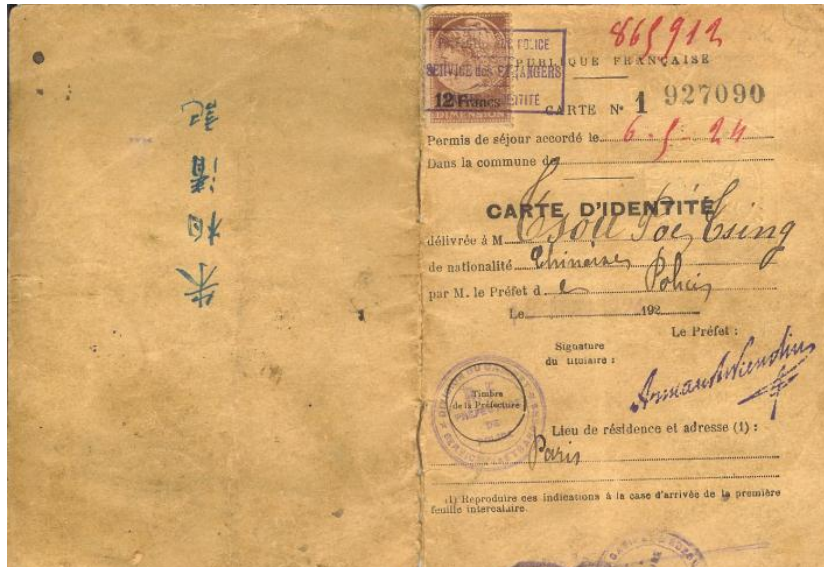 朱柏清記
PRÉFECTURE DE POLICE
SERVICE DES ÉTRANGERS
12 Francs
DIMENSION
865912
RÉPUBLIQUE FRANÇAISE
CARTE N° 1 927090
Permis de séjour accordé le 6-5-24
Dans la commune de
CARTE D'IDENTITÉ
délivrée à M Tsou Poe Tsing
de nationalité Chinoise
par M. le Préfet de Police
Le 192
Le Préfet :
Signature
du titulaire :
Timbre
de la Préfecture
Lieu de résidence et adresse (1) :
Paris
(1) Reproduire ces indications à la case d'arrivée de la première
feuille intercalaire.